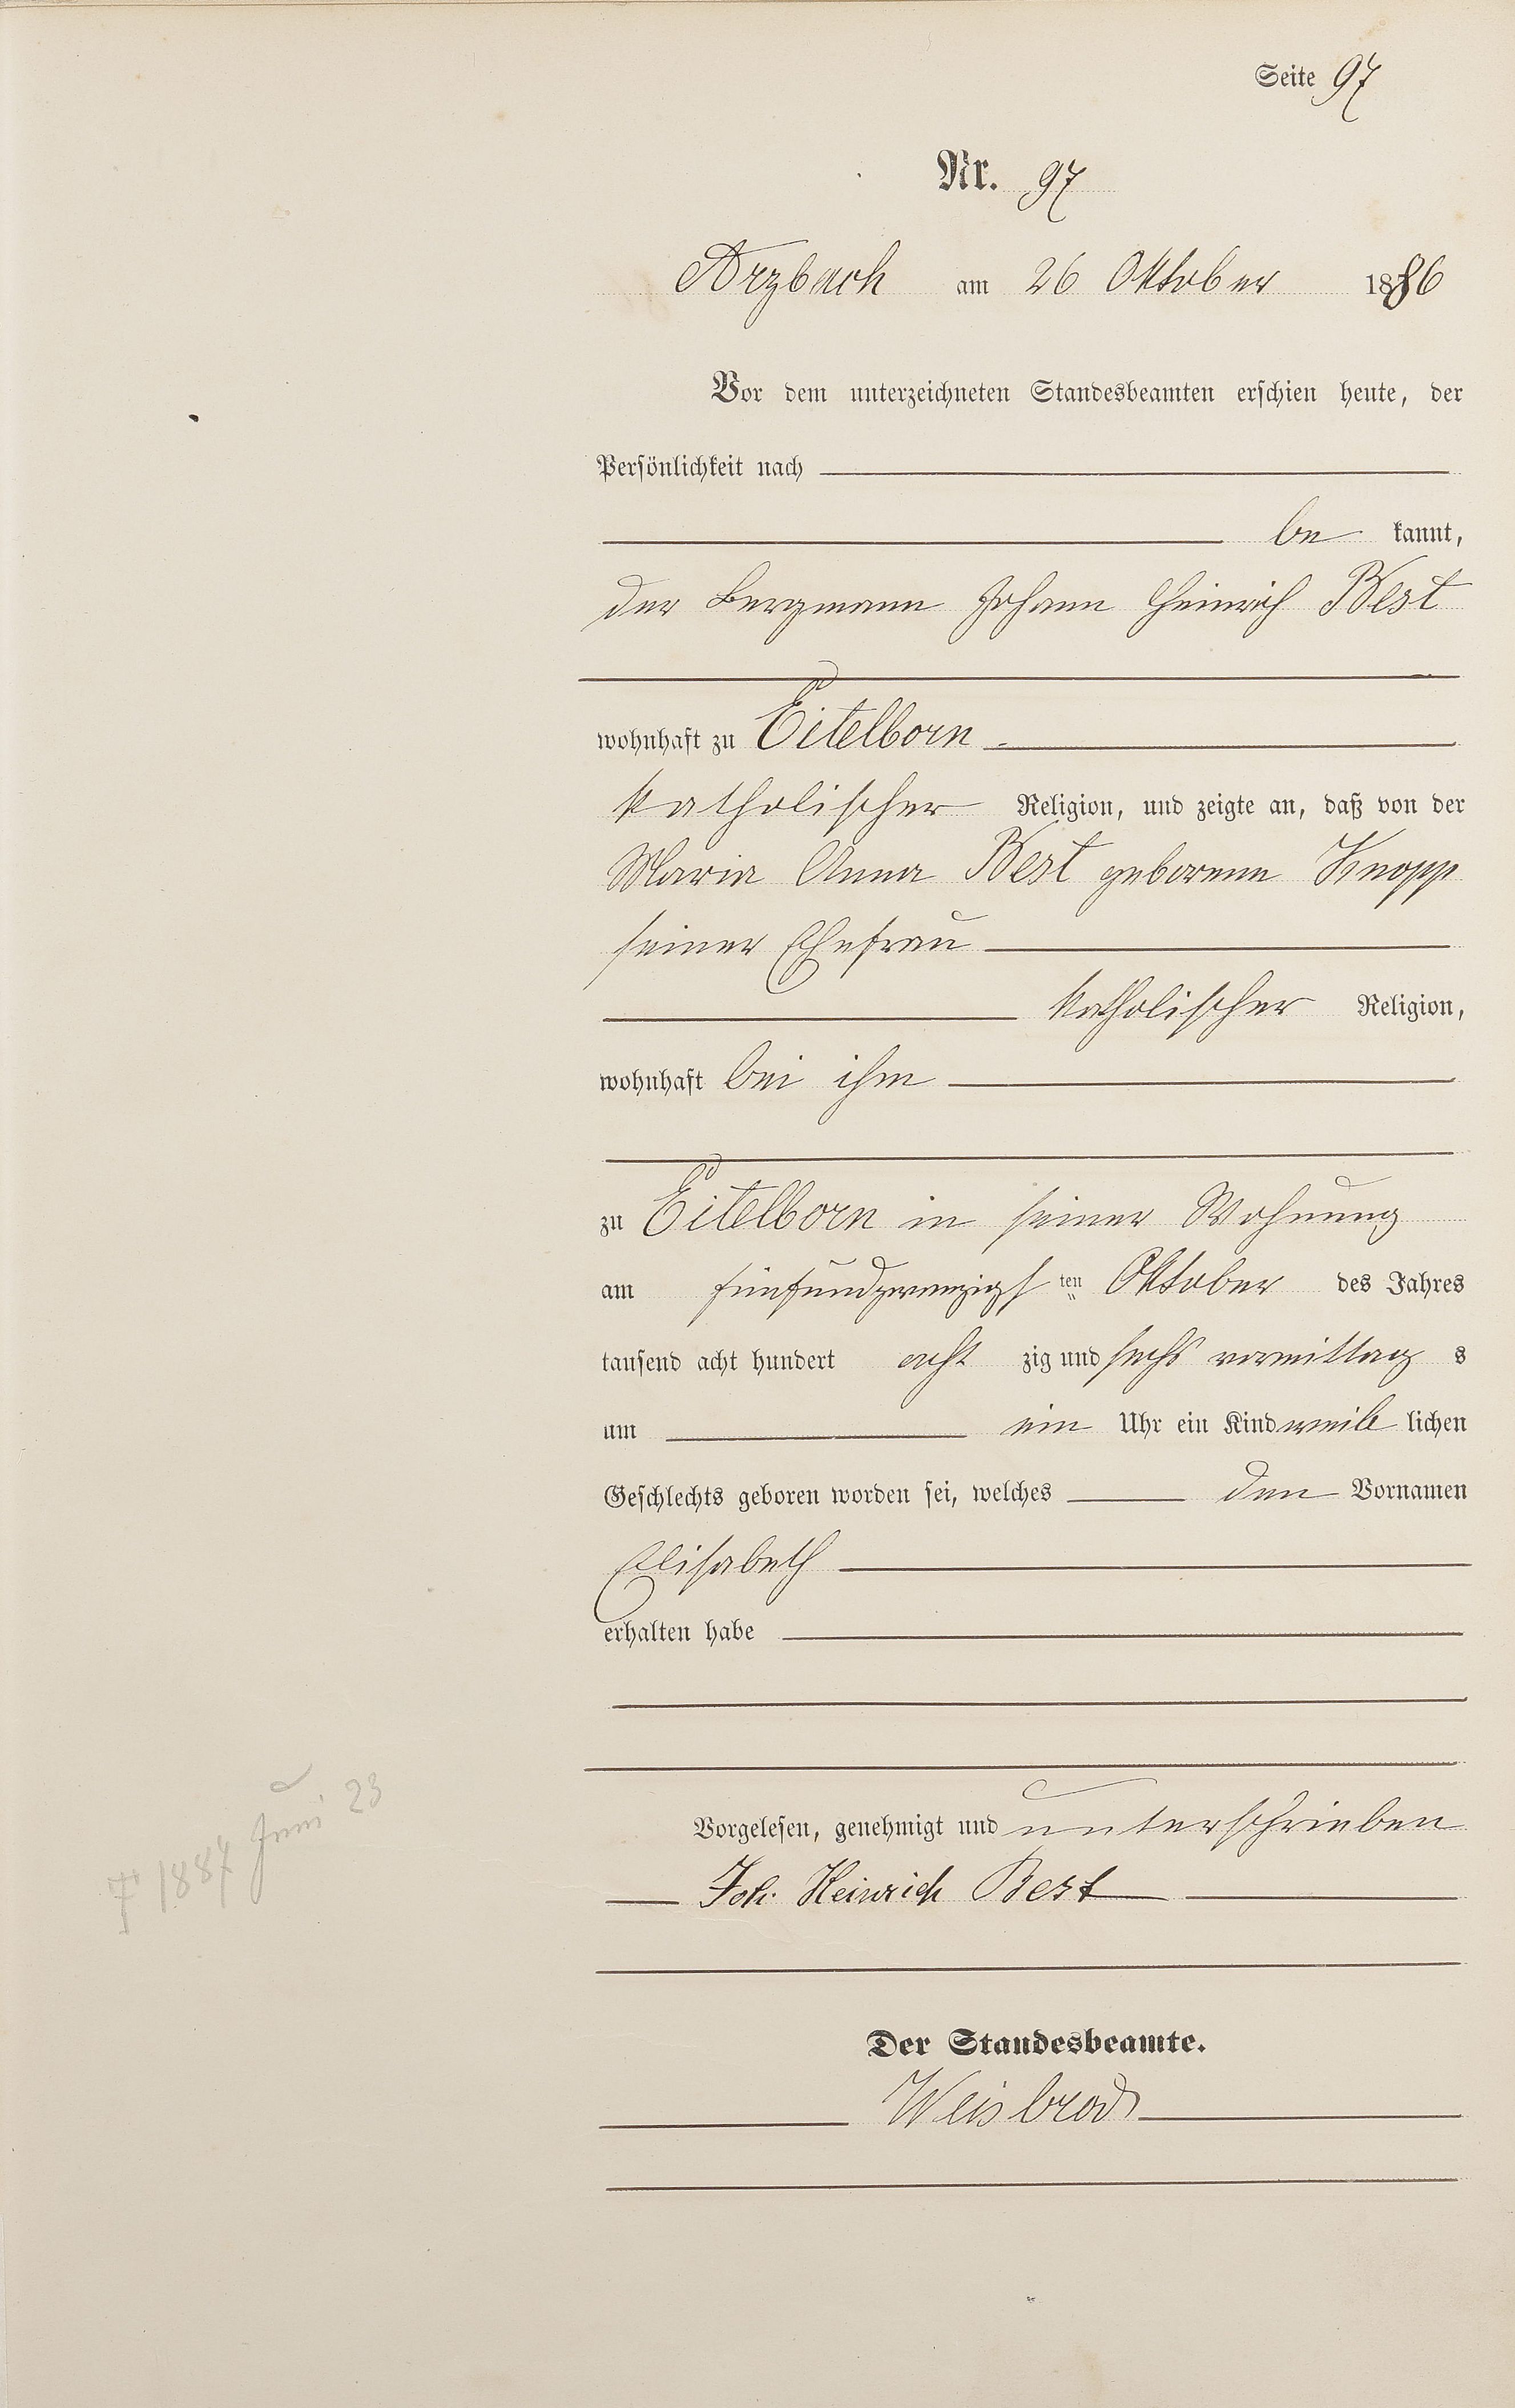 Seite 97
Nr. 97
Arzbach am 26 Oktober 1886
Vor dem unterzeichneten Standesbeamten erschien heute, der
Persönlichkeit nach
be kannt,
der Bergmann Johann Heinrich Best
wohnhaft zu Eitelborn
katholischer Religion, und zeigte an, daß von der
Maria Anna Best geborene Knopp
seiner Ehefrau
katholischer Religion,
wohnhaft bei ihm
zu Eitelborn in seiner Wohnung
am fünfundzwanzigsten Oktober des Jahres
tausend acht hundert acht zig und sechs vormittag s
um ein Uhr ein Kind weib lichen
Geschlechts geboren worden sei, welches den Vornamen
Elisabeth
erhalten habe
Vorgelesen, genehmigt und unterschrieben
Joh. Heinrich Best
Der Standesbeamte.
Weisbrod
† 1887 Juni 23